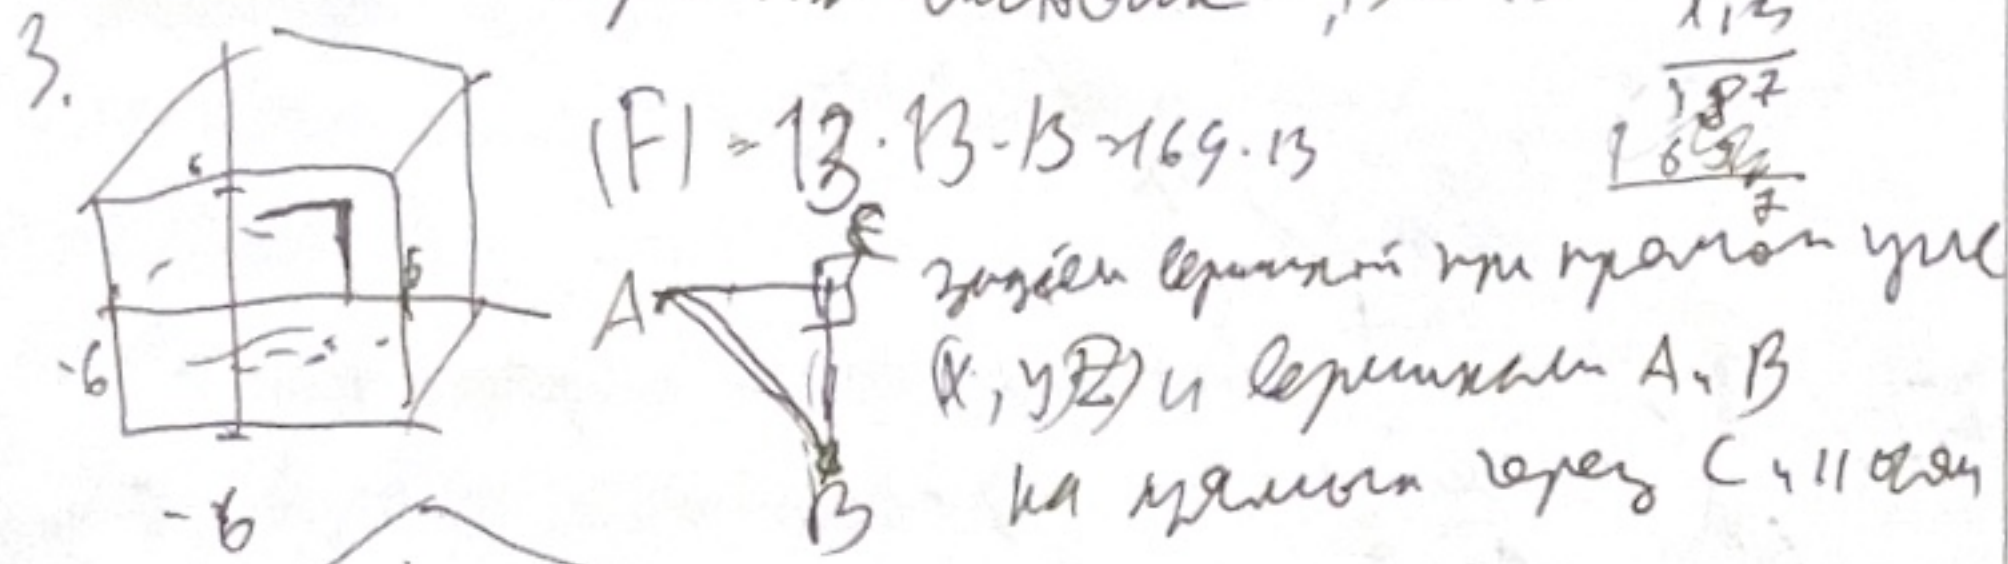 3.
1,3
|F| = 13 · 13 · 13 = 169 · 13
187
7
6
6
-6
-6
A
C
B
задаём вершиной при прямом угле
(x, y, z) и вершинами A и B
на прямых через C и || осям